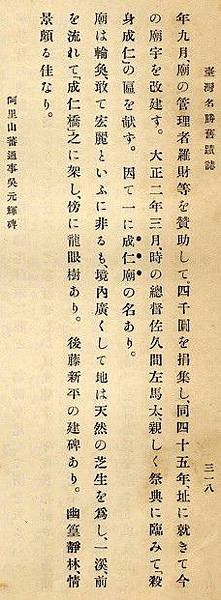 臺灣名勝舊蹟誌
三一八
年九月廟の管理者羅財等を贊助して、四千圓を捐集し、同四十五年址に就きて今
の廟宇を改建す。大正二年三月、時の總督佐久間左馬太、親しく祭典に臨みて「殺
身成仁」の區を献す。因て一に成仁廟の名あり。
廟は輪奐、敢て宏麗といふに非るも、境內廣くして地は天然の芝生を爲し、一溪、前
を流れて「成仁橋」之に架し、傍に龍眼樹あり。後藤新平の建碑あり。幽篁靜林、情
景頗る佳なり。
阿里山蕃通事吳元輝碑